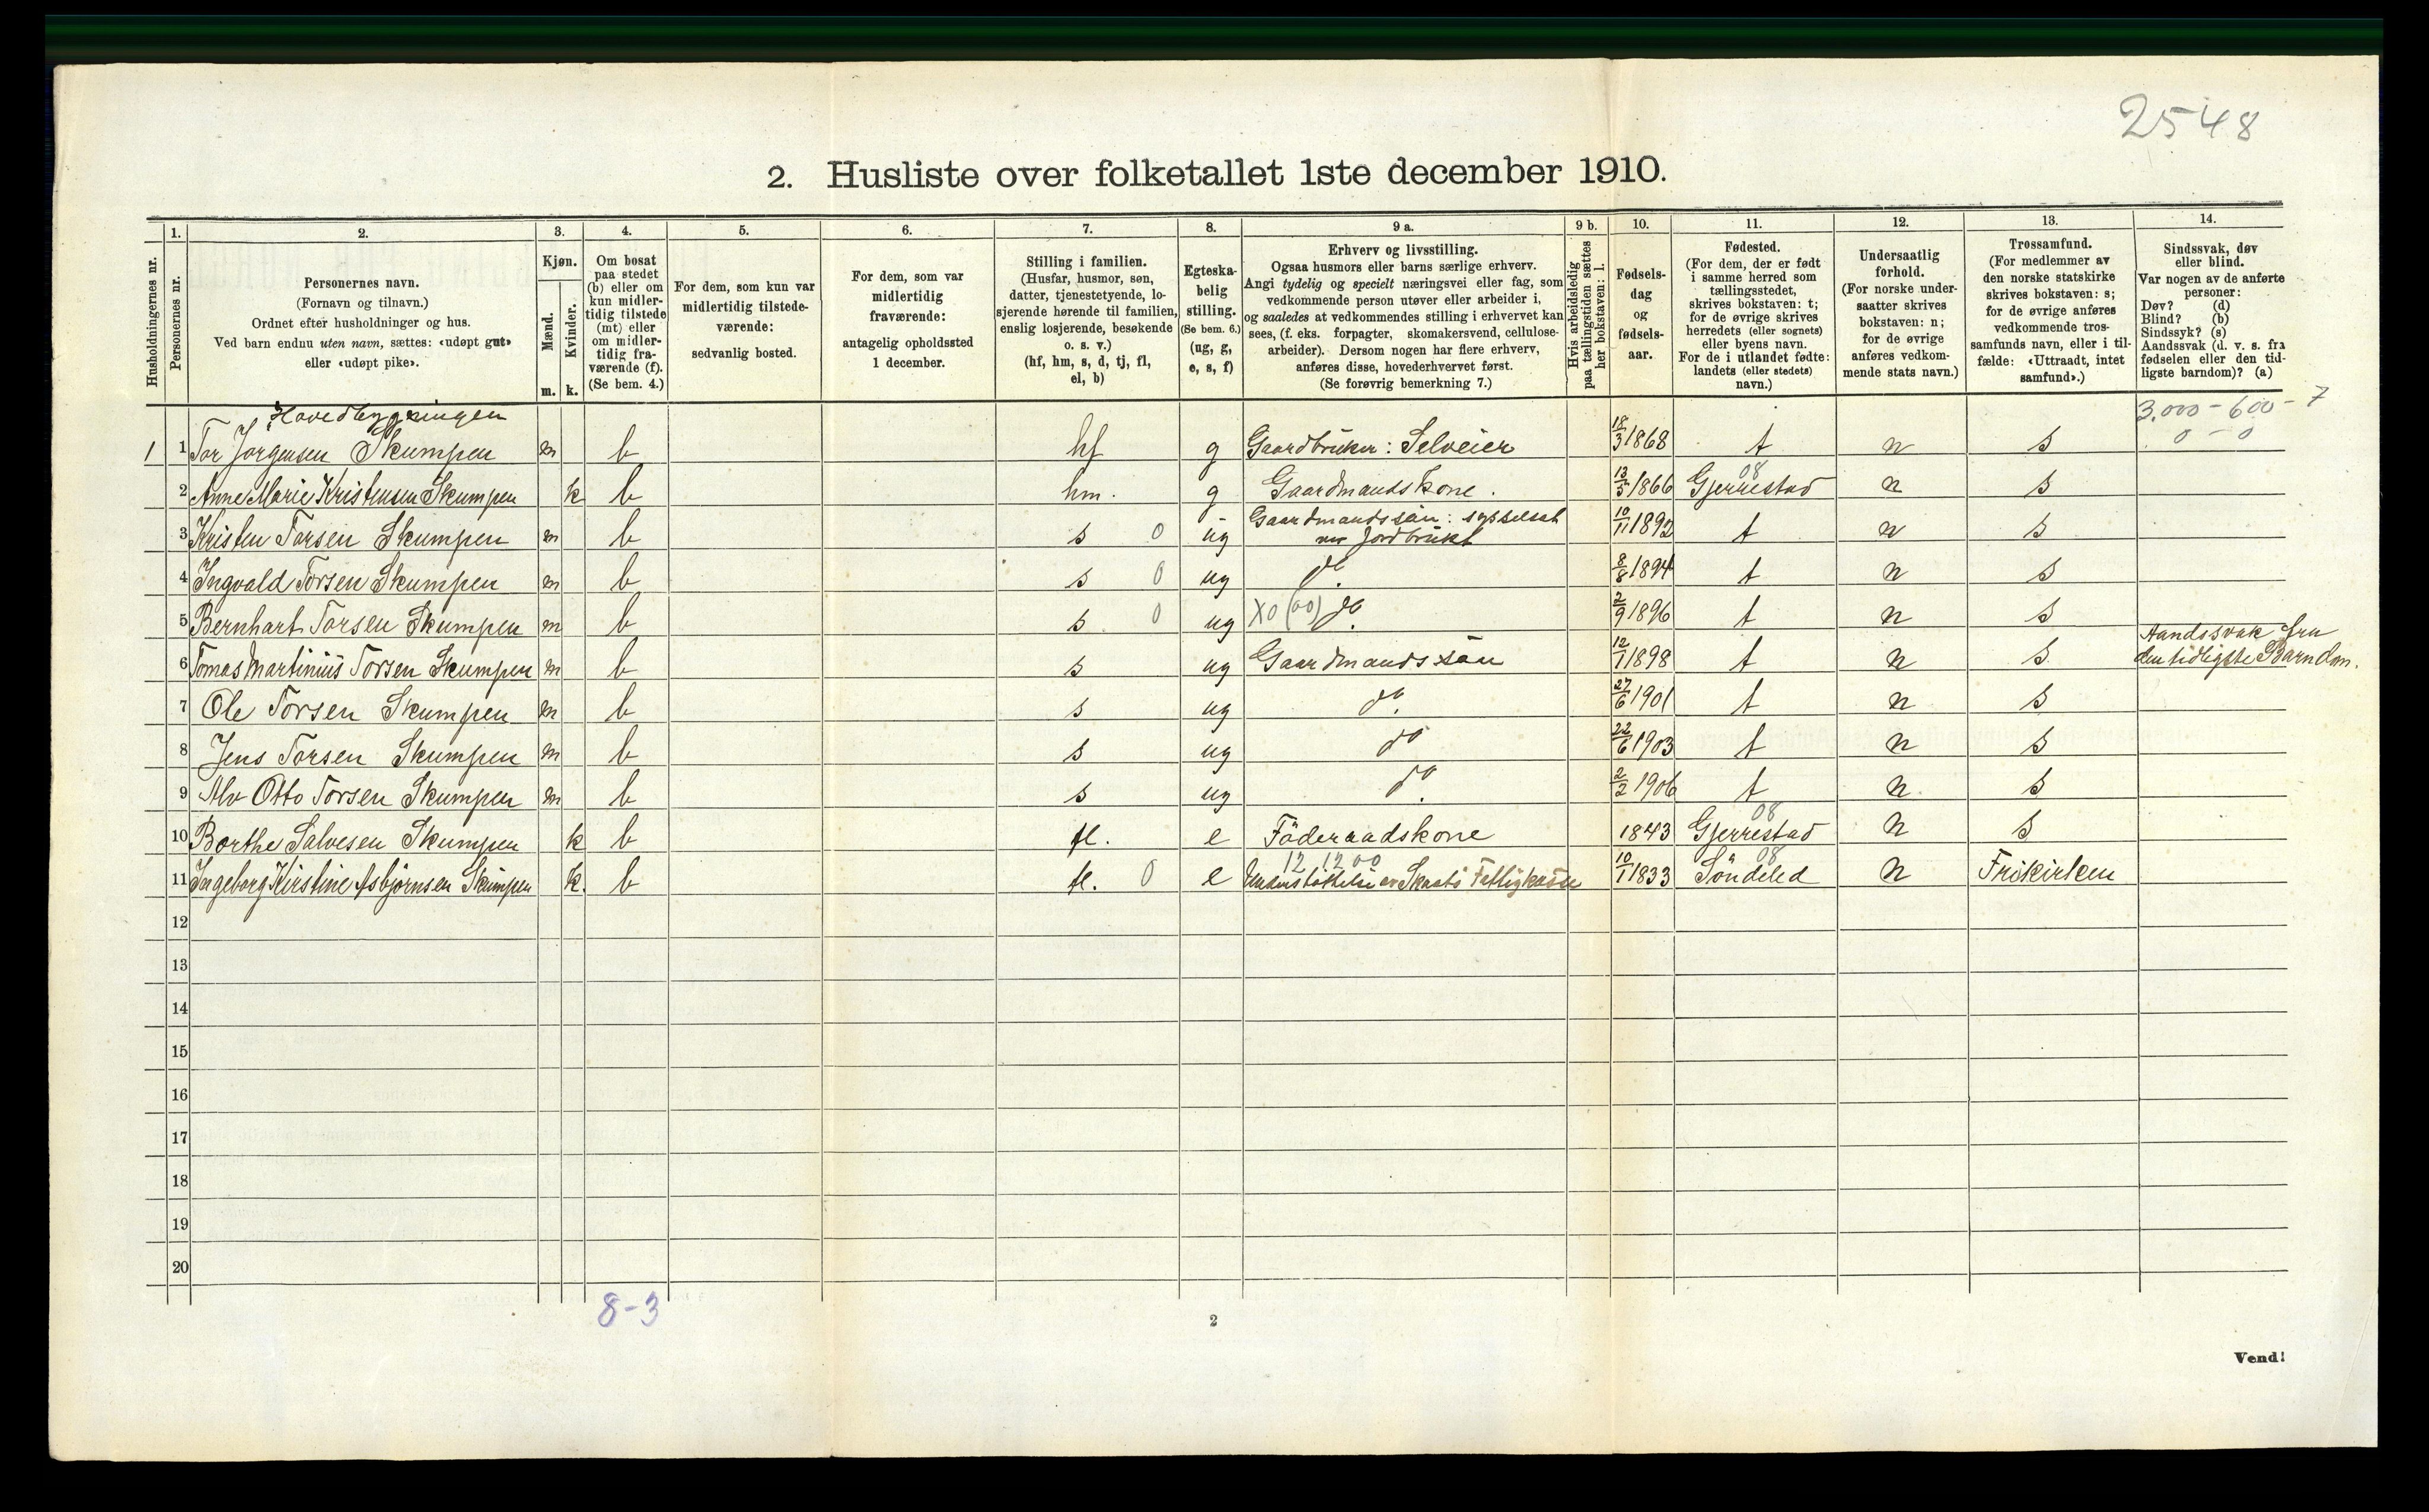 2548
2. Husliste over folketallet 1ste december 1910.
Husholdningernes nr.
1. Personernes nr.
2. Personernes navn. (Fornavn og tilnavn.) Ordnet efter husholdninger og hus. Ved barn endnu uten navn, sættes: «udøpt gut» eller «udøpt pike».
3. Kjøn. Mænd. m. Kvinder. k.
4. Om bosat paa stedet (b) eller om kun midlertidig tilstede (mt) eller om midlertidig fraværende (f). (Se bem. 4.)
5. For dem, som kun var midlertidig tilstedeværende: sedvanlig bosted.
6. For dem, som var midlertidig fraværende: antagelig opholdssted 1 december.
7. Stilling i familien. (Husfar, husmor, søn, datter, tjenestetyende, losjerende hørende til familien, enslig losjerende, besøkende o. s. v.) (hf, hm, s, d, tj, fl, el, b)
8. Egteskabelig stilling. (Se bem. 6.) (ug, g, e, s, f)
9 a. Erhverv og livsstilling. Ogsaa husmors eller barns særlige erhverv. Angi tydelig og specielt næringsvei eller fag, som vedkommende person utøver eller arbeider i, og saaledes at vedkommendes stilling i erhvervet kan sees, (f. eks. forpagter, skomakersvend, cellulosearbeider). Dersom nogen har flere erhverv, anføres disse, hovederhvervet først. (Se forøvrig bemerkning 7.)
9 b. Hvis arbeidsledig paa tællingstiden sættes her bokstaven: l.
10. Fødselsdag og fødselsaar.
11. Fødested. (For dem, der er født i samme herred som tællingsstedet, skrives bokstaven: t; for de øvrige skrives herredets (eller sognets) eller byens navn. For de i utlandet fødte: landets (eller stedets) navn.)
12. Undersaatlig forhold. (For norske undersaatter skrives bokstaven: n; for de øvrige anføres vedkommende stats navn.)
13. Trossamfund. (For medlemmer av den norske statskirke skrives bokstaven: s; for de øvrige anføres vedkommende trossamfunds navn, eller i tilfælde: «Uttraadt, intet samfund».)
14. Sindssvak, døv eller blind. Var nogen av de anførte personer: Døv? (d) Blind? (b) Sindssyk? (s) Aandssvak (d. v. s. fra fødselen eller den tidligste barndom)? (a)
Hovedbygningen 3.000 - 600 - 7
0 - 0
1 1 Tor Jorgensen Skumpen m b hf g Gaardbruker: Selveier 18/3 1868 t n s
2 Anne Marie Kristensen Skumpen k b hm. g Gaardmandskone. 13/5 1866 Gjerrestad 08 n s
3 Kristen Torsen Skumpen m b s 0 ug Gaardmandssön: sysselsat ved Jordbruket 10/11 1892 t n s
4 Ingvald Torsen Skumpen m b s 0 ug do. 8/8 1894 t n s
5 Bernhart Torsen Skumpen m b s 0 ug X0 (00) do. 2/9 1896 t n s
6 Tomas Martinius Torsen Skumpen m b s ug Gaardmandssön 12/1 1898 t n s Aandssvak fra den tidligste Barndom.
7 Ole Torsen Skumpen m b s ug do. 27/6 1901 t n s
8 Jens Torsen Skumpen m b s ug do 22/6 1903 t n s
9 Alv Otto Torsen Skumpen m b s ug do. 2/2 1906 t n s
10 Borthe Salvesen Skumpen k b fl. e Föderaadskone 1843 Gjerrestad 08 n s
11 Ingeborg Kirstine Asbjørnsen Skumpen k. b fl. 0 e 12 12 00 Understöttelse av Skaatö Fattigkasse 10/1 1833 Söndeled 08 n Frikirken
12
13
14
15
16
17
18
19
20
8-3
2
Vend!